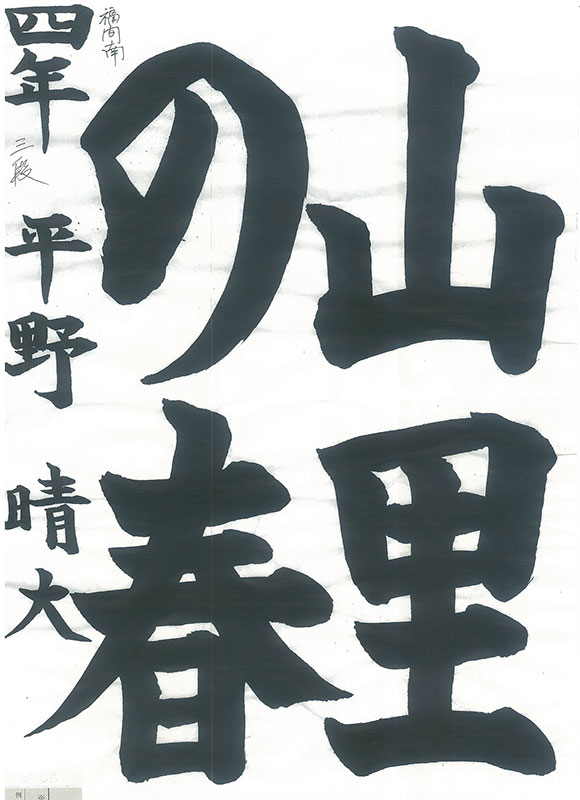 山里
の春
四年 平野 晴大
福間南
三段